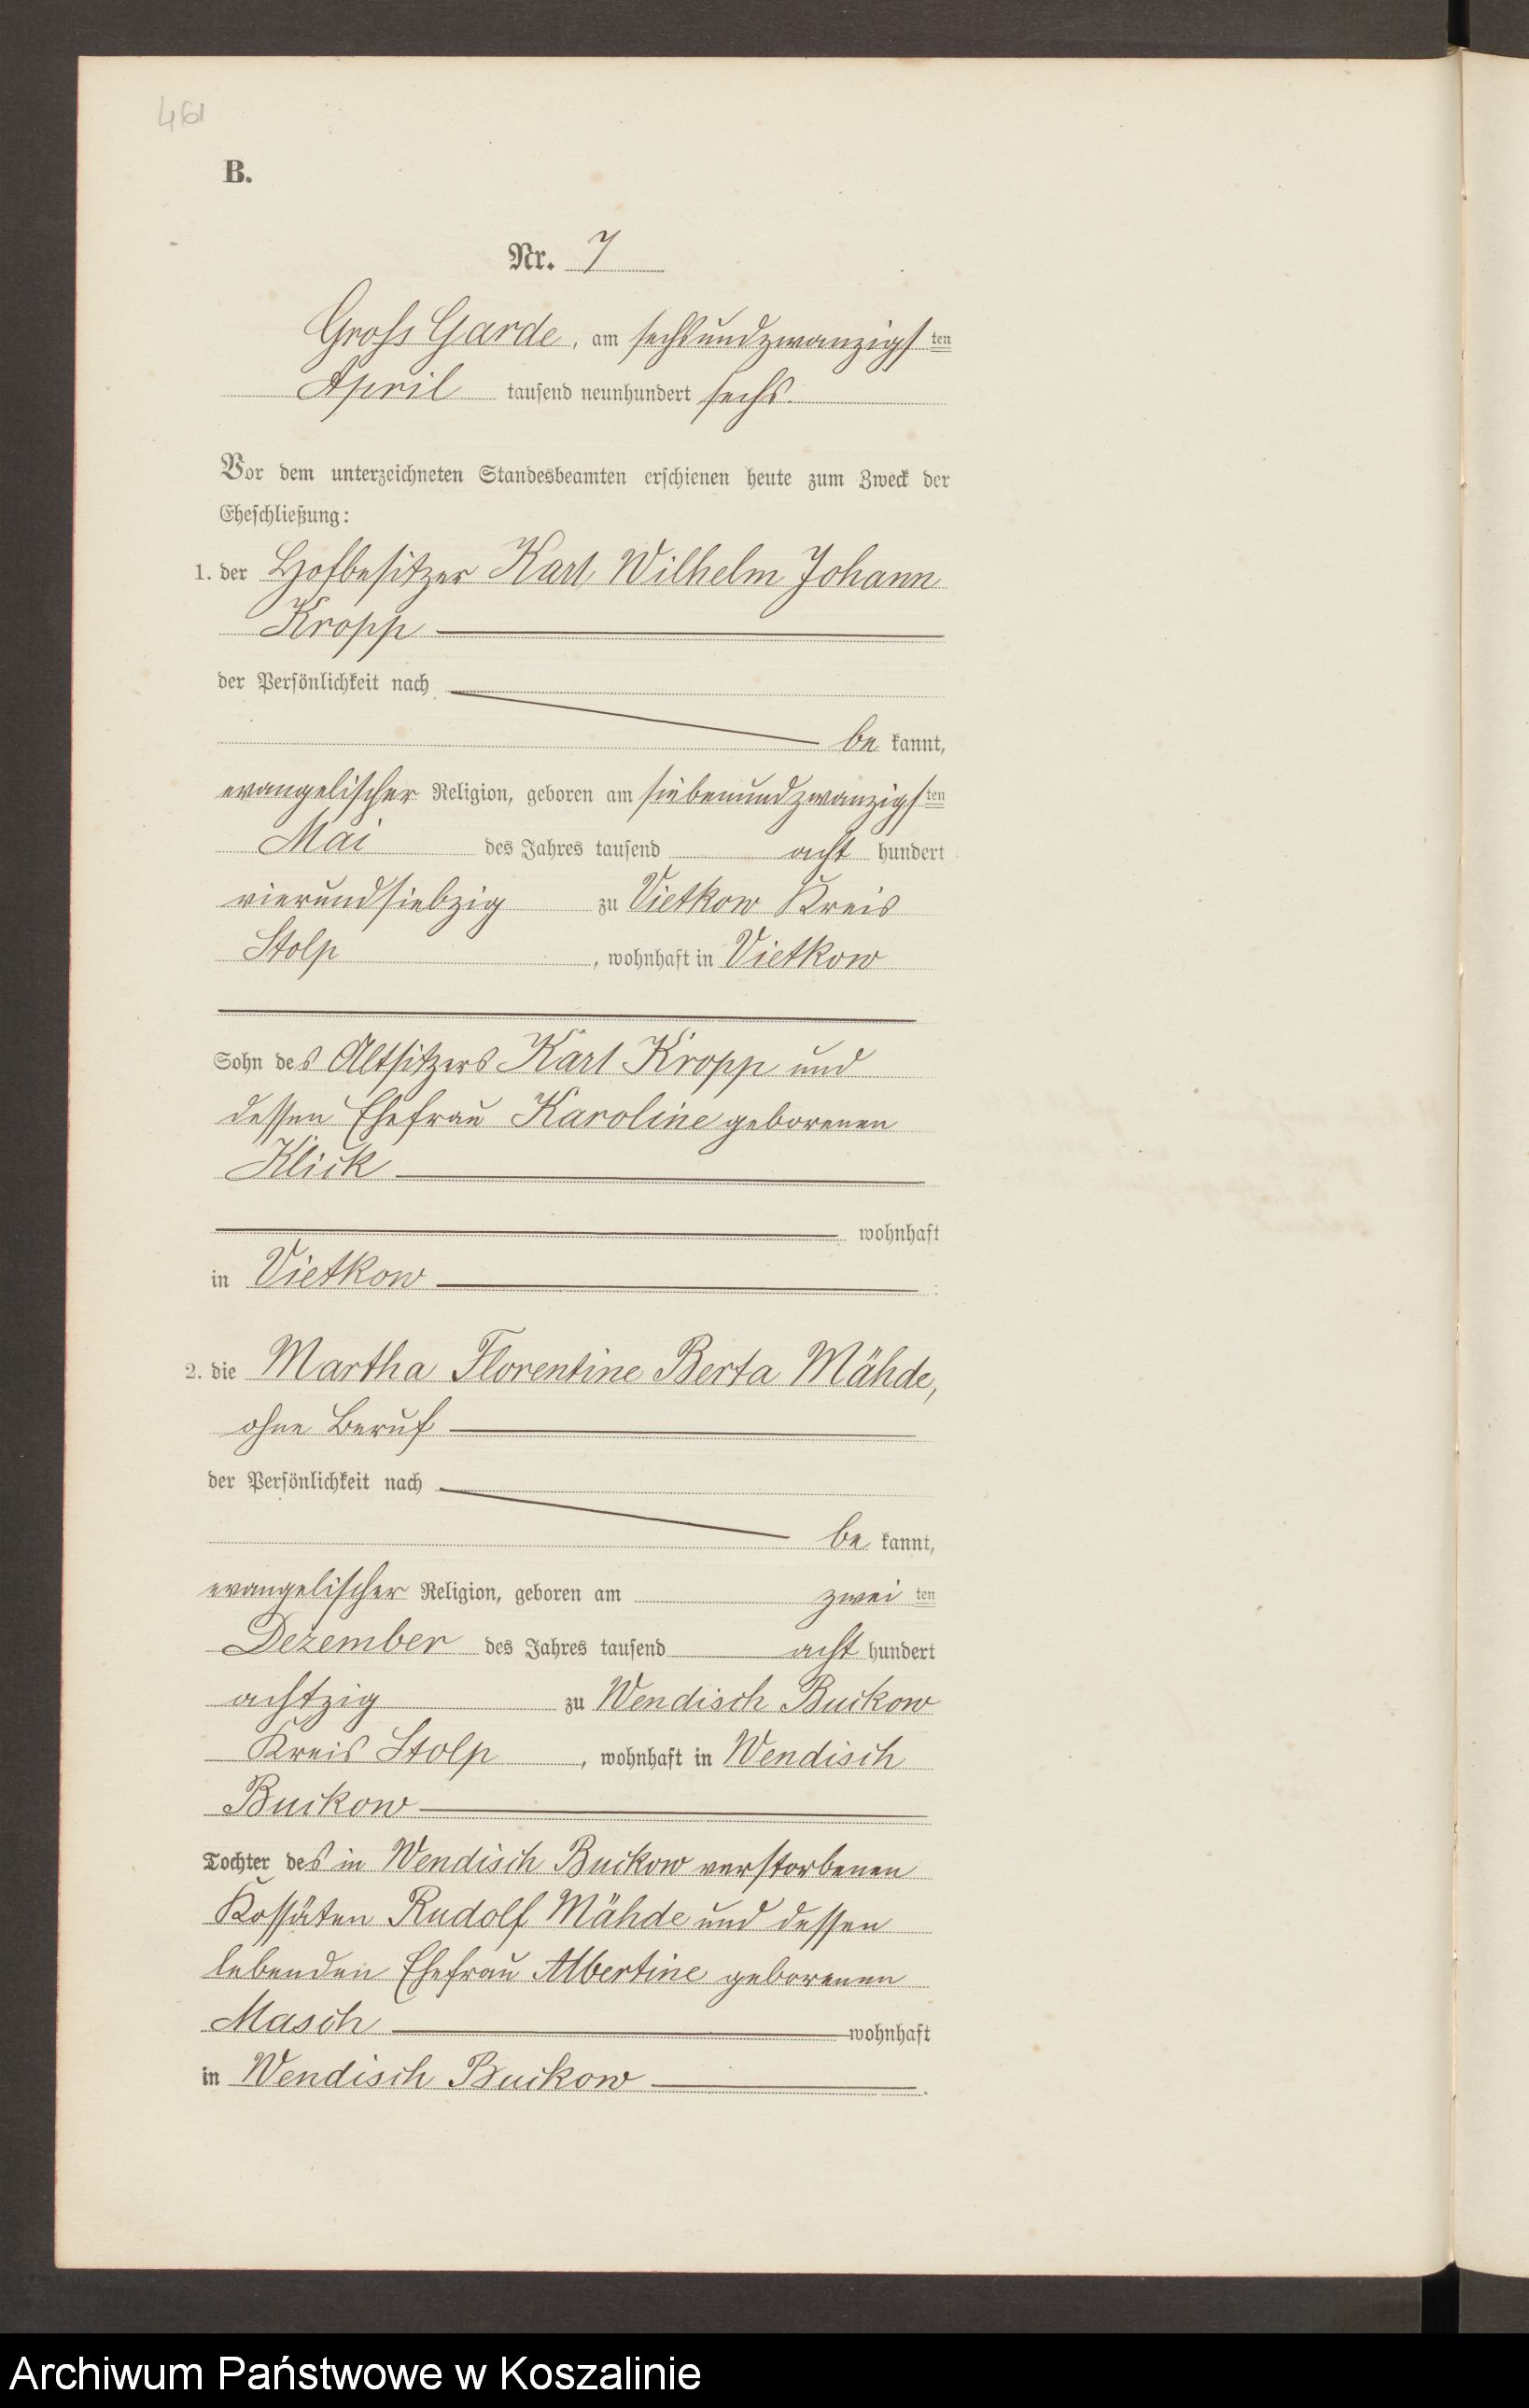 461
B.
Nr. 7
Gross Garde, am sechsundzwanzigsten
April tausend neunhundert sechs.
Vor dem unterzeichneten Standesbeamten erschienen heute zum Zweck der
Eheschließung:
1. der Hofbesitzer Karl Wilhelm Johann
Kropp
der Persönlichkeit nach
be kannt,
evangelischer Religion, geboren am siebenundzwanzigsten
Mai des Jahres tausend acht hundert
vierundsiebzig zu Vietkow Kreis
Stolp, wohnhaft in Vietkow
Sohn des Altsitzers Karl Kropp und
dessen Ehefrau Karoline geborenen
Klick
wohnhaft
in Vietkow
2. die Martha Florentine Berta Mähde,
ohne Beruf
der Persönlichkeit nach
be kannt,
evangelischer Religion, geboren am zwei ten
Dezember des Jahres tausend acht hundert
achtzig zu Wendisch Buckow
Kreis Stolp, wohnhaft in Wendisch
Buckow
Tochter des in Wendisch Buckow verstorbenen
Kossäten Rudolf Mähde und dessen
lebenden Ehefrau Albertine geborenen
Masch wohnhaft
in Wendisch Buckow.
Archiwum Państwowe w Koszalinie